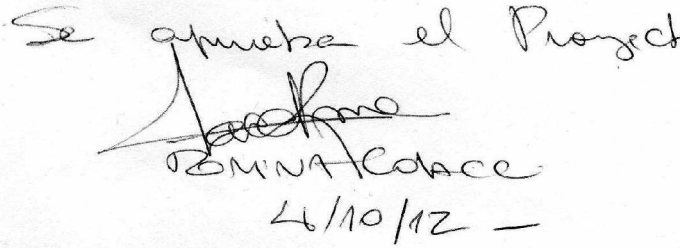 Se aprueba el Proyect
ROMINA Colacc
4/10/12 —